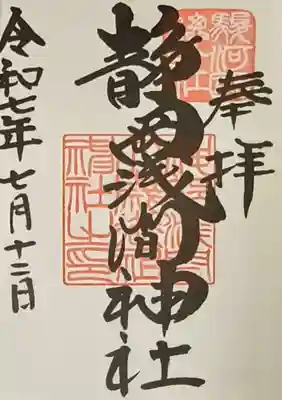 奉拝
駿河国総社
静岡浅間神社
令和七年七月十二日